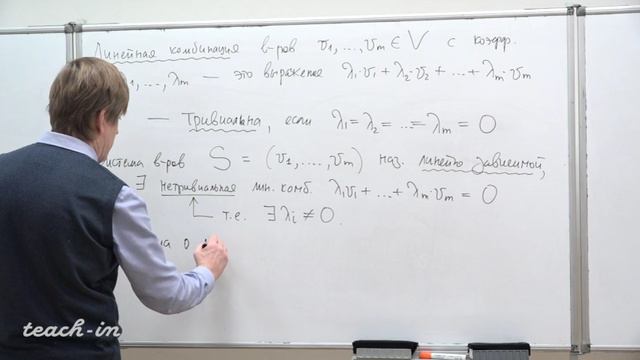 Линейная комбинация в-ров v₁, ..., vₘ ∈ V с коэфф.
₁, ..., λₘ — это выражение λ₁·v₁ + λ₂·v₂ + ... + λₘ·vₘ
— Тривиальна, если λ₁ = λ₂ = ... = λₘ = 0
истема в-ров S = (v₁, ..., vₘ) наз. линейно зависимой,
∃ нетривиальная лин. комб. λ₁v₁ + ... + λₘ·vₘ = 0
т.е. ∃ λᵢ ≠ 0.
о
teach-in